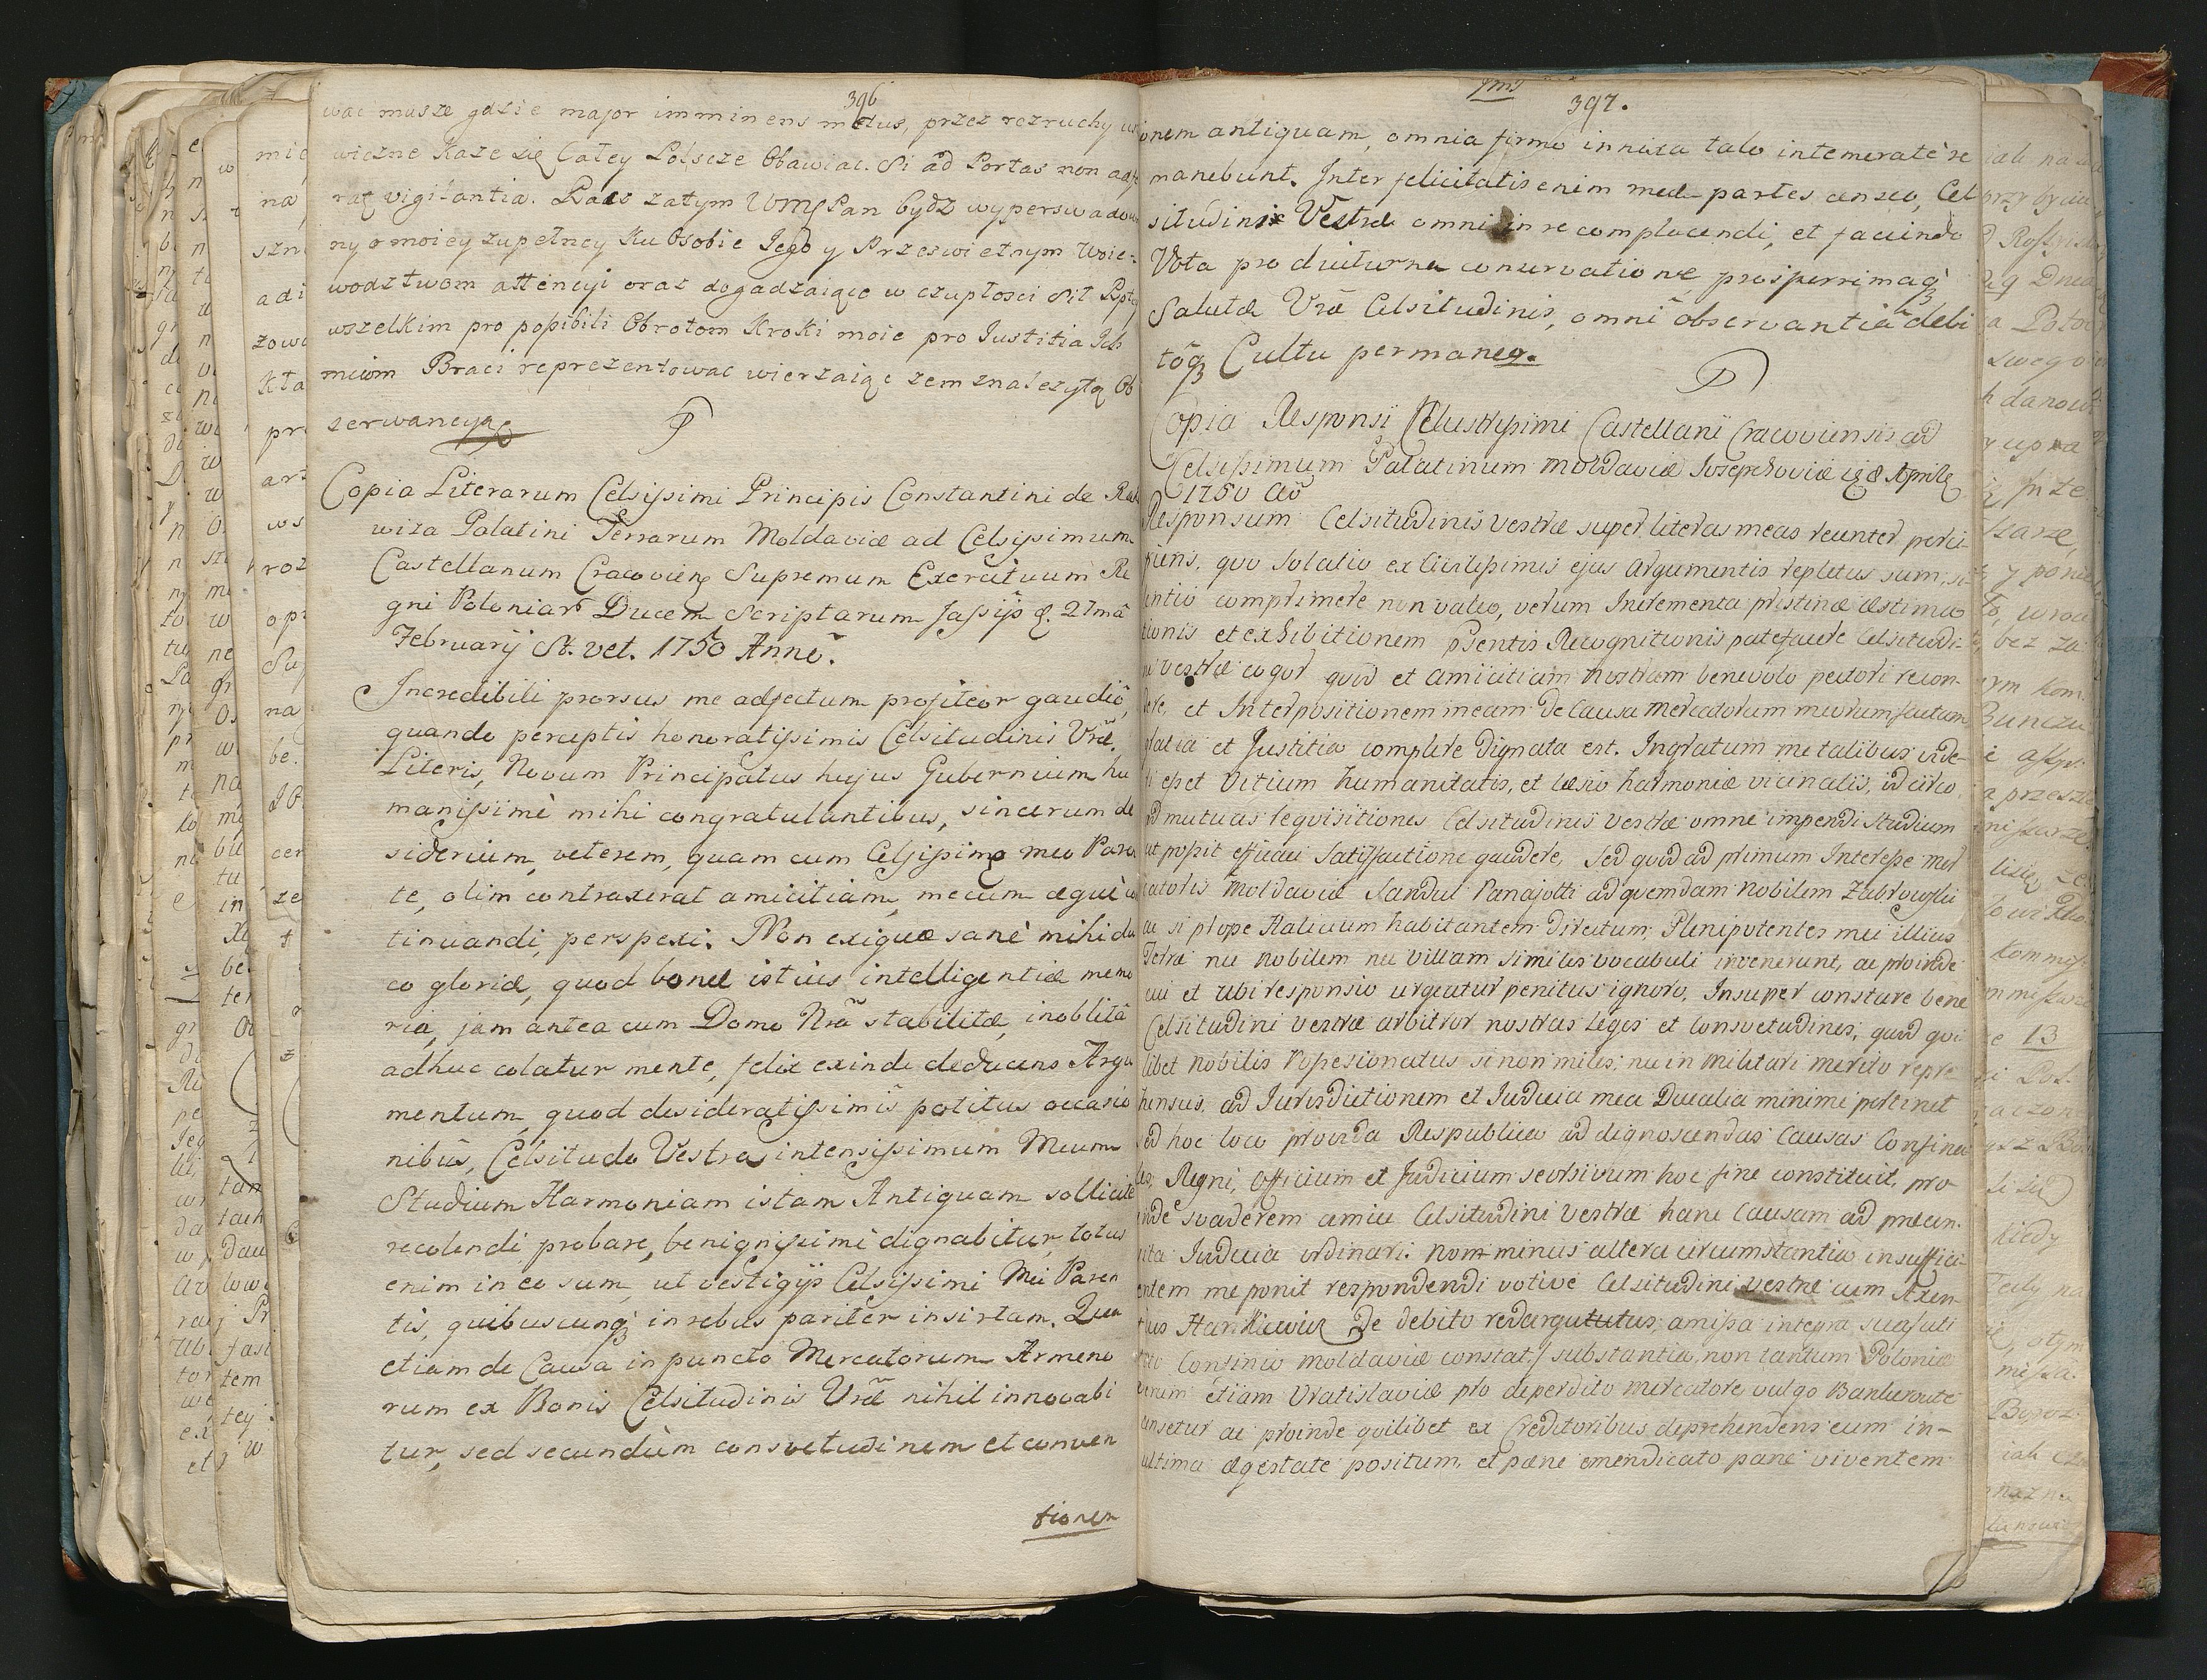 396
wac musze gdzie major imminens metus, przez rozruchy
wiczne kaze się Całey Polscze Obawiac. Si ad Portas non
rat vigilantia. Racz zatym WMcPan bydz wyperswadowa
ny o moiey zupełney ku Osobie Jego y Przeswietnym Woie-
wodztwom attencyi oraz dogadzaiąc w czupłosci Sił
wszelkim pro possibili Obrotom Kroki moie pro Justitia Ich
mciom Braci reprezentowac wierzaiąc zem z nalezytą Ob
zerwancyą
Copia Literarum Celsissimi Principis Constantini de Rak
wiza Palatini Terrarum Moldaviæ ad Celsissimum
Castellanum Cracovien Supremum Exercituum Re
gni Poloniar Ducem Scriptarum Jassijs d. 21mã
Februarij St. vet. 1750 Anno.
Incredibili prorsus me adfectum profiteor gaudio,
quando perceptis honoratissimis Celsitudinis Vræ.
Literis, Novum Principatus hujus Gubernium hu
manissimè mihi congratulantibus, sincerum de
siderium, veterem, quam cum Celsissimo meo Paren
te, olim contraxerat amicitiam, mecum æquè con
tinuandi, perspexi. Non exiguæ sanè mihi du
co gloriæ, quod bonæ istius intelligentiæ memo
ria, jam antea cum Domo Nrã stabilitæ, inoblitâ
adhuc colatur mente, felix exinde deducens Argu
mentum, quod desideratissimis potitus occasio
nibus, Celsitudo Vestra intensissimum Meum
Studium Harmoniam istam Antiquam sollicitè
recolendi probare, benignissimè dignabitur, totus
enim in eo sum, ut vestigijs Celsissimi Mei Paren
tis, quibuscunq in rebus pariter insistam. Qua
etiam de Causa in puncto Mercatorum Armeno
rum ex Bonis Celsitudinis Vræ nihil innovabi
tur, sed secundùm consvetudinem et conven
tionem
397.
onem antiquam, omnia firmo innixa talo intemeratè re
manebunt. Inter felicitatis enim meæ partes censeo, Cel
situdinis Vestræ omni in re complacendi, et faciendo
Vota pro diuturna conservatione prosperrimaq
Salute Vræ Celsitudinis, omni observantia debi
toq Cultu permaneo.
Copia Responsi Illustrissimi Castellani Cracoviensis ad
Celsissimum Palatinum Moldaviæ Josephoviæ 19 Aprilis
1750 Aõ
Responsum Celsitudinis Vestræ super literas meas recenter perci
piens, quo solatio ex civilissimis ejus Argumentis repletus sum, si-
lentio comprimere non valeo, verum Incrementa pristinæ æstima
tionis et exhibitionem psentis Recognitionis patefacere Celsitudi-
ni Vestræ cogor quod et amicitiam nostram benevolo pectori recon-
dere, et Interpositionem meam de Causa Mercatorum meorum factam
gratia et Justitia complere dignata est. Ingratum me talibus vide-
ri esset Vitium humanitatis, et læsio harmoniæ vicinalis, idcirco
ad mutuas requisitiones Celsitudinis Vestræ omne impendi Studium
ut possit efficaci Satisfactione gaudere, Sed quod ad primum Interesse Mer
catoris Moldaviæ Sandul Panajotti ad quemdam Nobilem Zabrowski
ac si prope Halicium habitantem directum, Plenipotentes mei illius
Terræ nec Nobilem nec Villam similis vocabuli invenerunt, ac proinde
cui et ubi responsio urgeatur penitus ignoro. Insuper constare bene
Celsitudini Vestræ arbitror nostras Leges et Consvetudines, quod qui
libet Nobilis Possesionatus si non miles, nec in Militari merito repre
hensus, ad Jurisdictionem et Judicia mea Ducalia minimè pertinet
sed hoc loco provida Respublica ad dignoscendas Causas Confinea
les, Regni, Officium et Judicium seorsivum hoc fine constituit, pro
inde svaderem amicè Celsitudini Vestræ hanc Causam ad præcun-
cta Judicia ordinari. Non minus altera circumstantia insuffici-
entem me ponit respondendi votivè Celsitudini Vestræ cum Axen-
tius Hankiewicz de debito redargutus, amissa integra sua (uti
toto Confinio Moldaviæ constat) substantia, non tantum Poloniæ
verum etiam Vratislaviæ pro deperdito mercatore vulgo Bankeroute
censetur ac proinde quilibet ex Creditoribus deprehendens eum in-
ultima ægestate positum, et pæne emendicato pane viventem